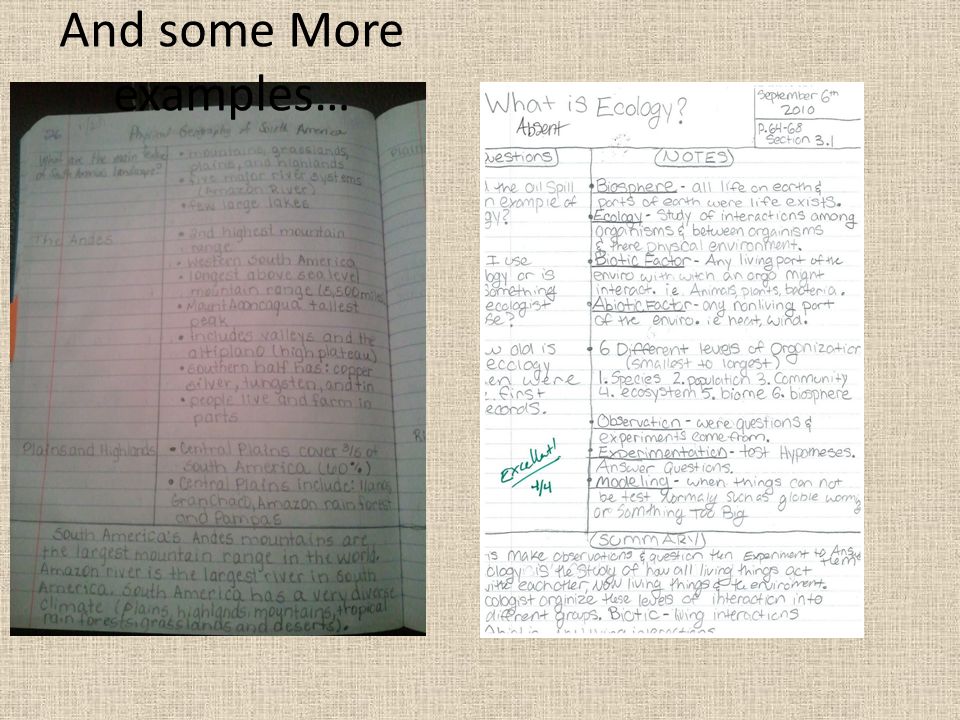 And some More
examples...
26
Physical Geography of South America
What are the main
of South America's landscape?
• mountains, grasslands,
plains, and highlands
• five major river systems
(Amazon River)
• few large lakes
The Andes
• 2nd highest mountain
range
• western South America
• longest above sea level
mountain range (5,500 miles)
• Mount Aconcagua tallest
peak
• includes valleys and the
altiplano (high plateau)
• southern half has: copper
silver, tungsten, and tin
• people live and farm in
parts
Plains and Highlands
• Central Plains cover 3/5 of
south America (60%)
• Central Plains include: llanos,
Gran Chaco, Amazon rain forest
and Pampas
South America's Andes mountains are
the largest mountain range in the world.
Amazon river is the largest river in south
America. South America has a very diverse
climate (plains, highlands, mountains, tropical
rain forests, grasslands and deserts).
What is Ecology?
Absent
September 6th
2010
P.64-68
Section 3.1
uestions
the Oil Spill
n example of
gy?
I use
logy or is
omething
ecologist
se?
old is
ecology
en were
first
econds.
Excellent!
4/4
(NOTES)
• Biosphere - all life on earth &
parts of earth were life exists.
• Ecology - Study of interactions among
organisms & between orgainisms
& there physical environment.
• Biotic Factor - Any living part of the
enviro with witch an orgo might
interact. i.e. Animals, plants, bacteria.
• Abiotic Factor - any nonliving part
of the enviro. ie heat, wind.
• 6 Different levels of Organization
(smallest to largest)
1. Species 2. population 3. Community
4. ecosystem 5. biome 6. biosphere
• Observation - were questions &
experiments come from.
• Experimentation - test Hypotheses.
Answer Questions.
• modeling - when things can not
be test normaly such as globle
or something Too Big
(SUMMARY)
is make observations & question then Experiment to Ans
them
ology is the study of how all living things act
with eachother, Now living things & the enviroment.
cologist orginize these levels of interaction into
different groups. Biotic - living interactions